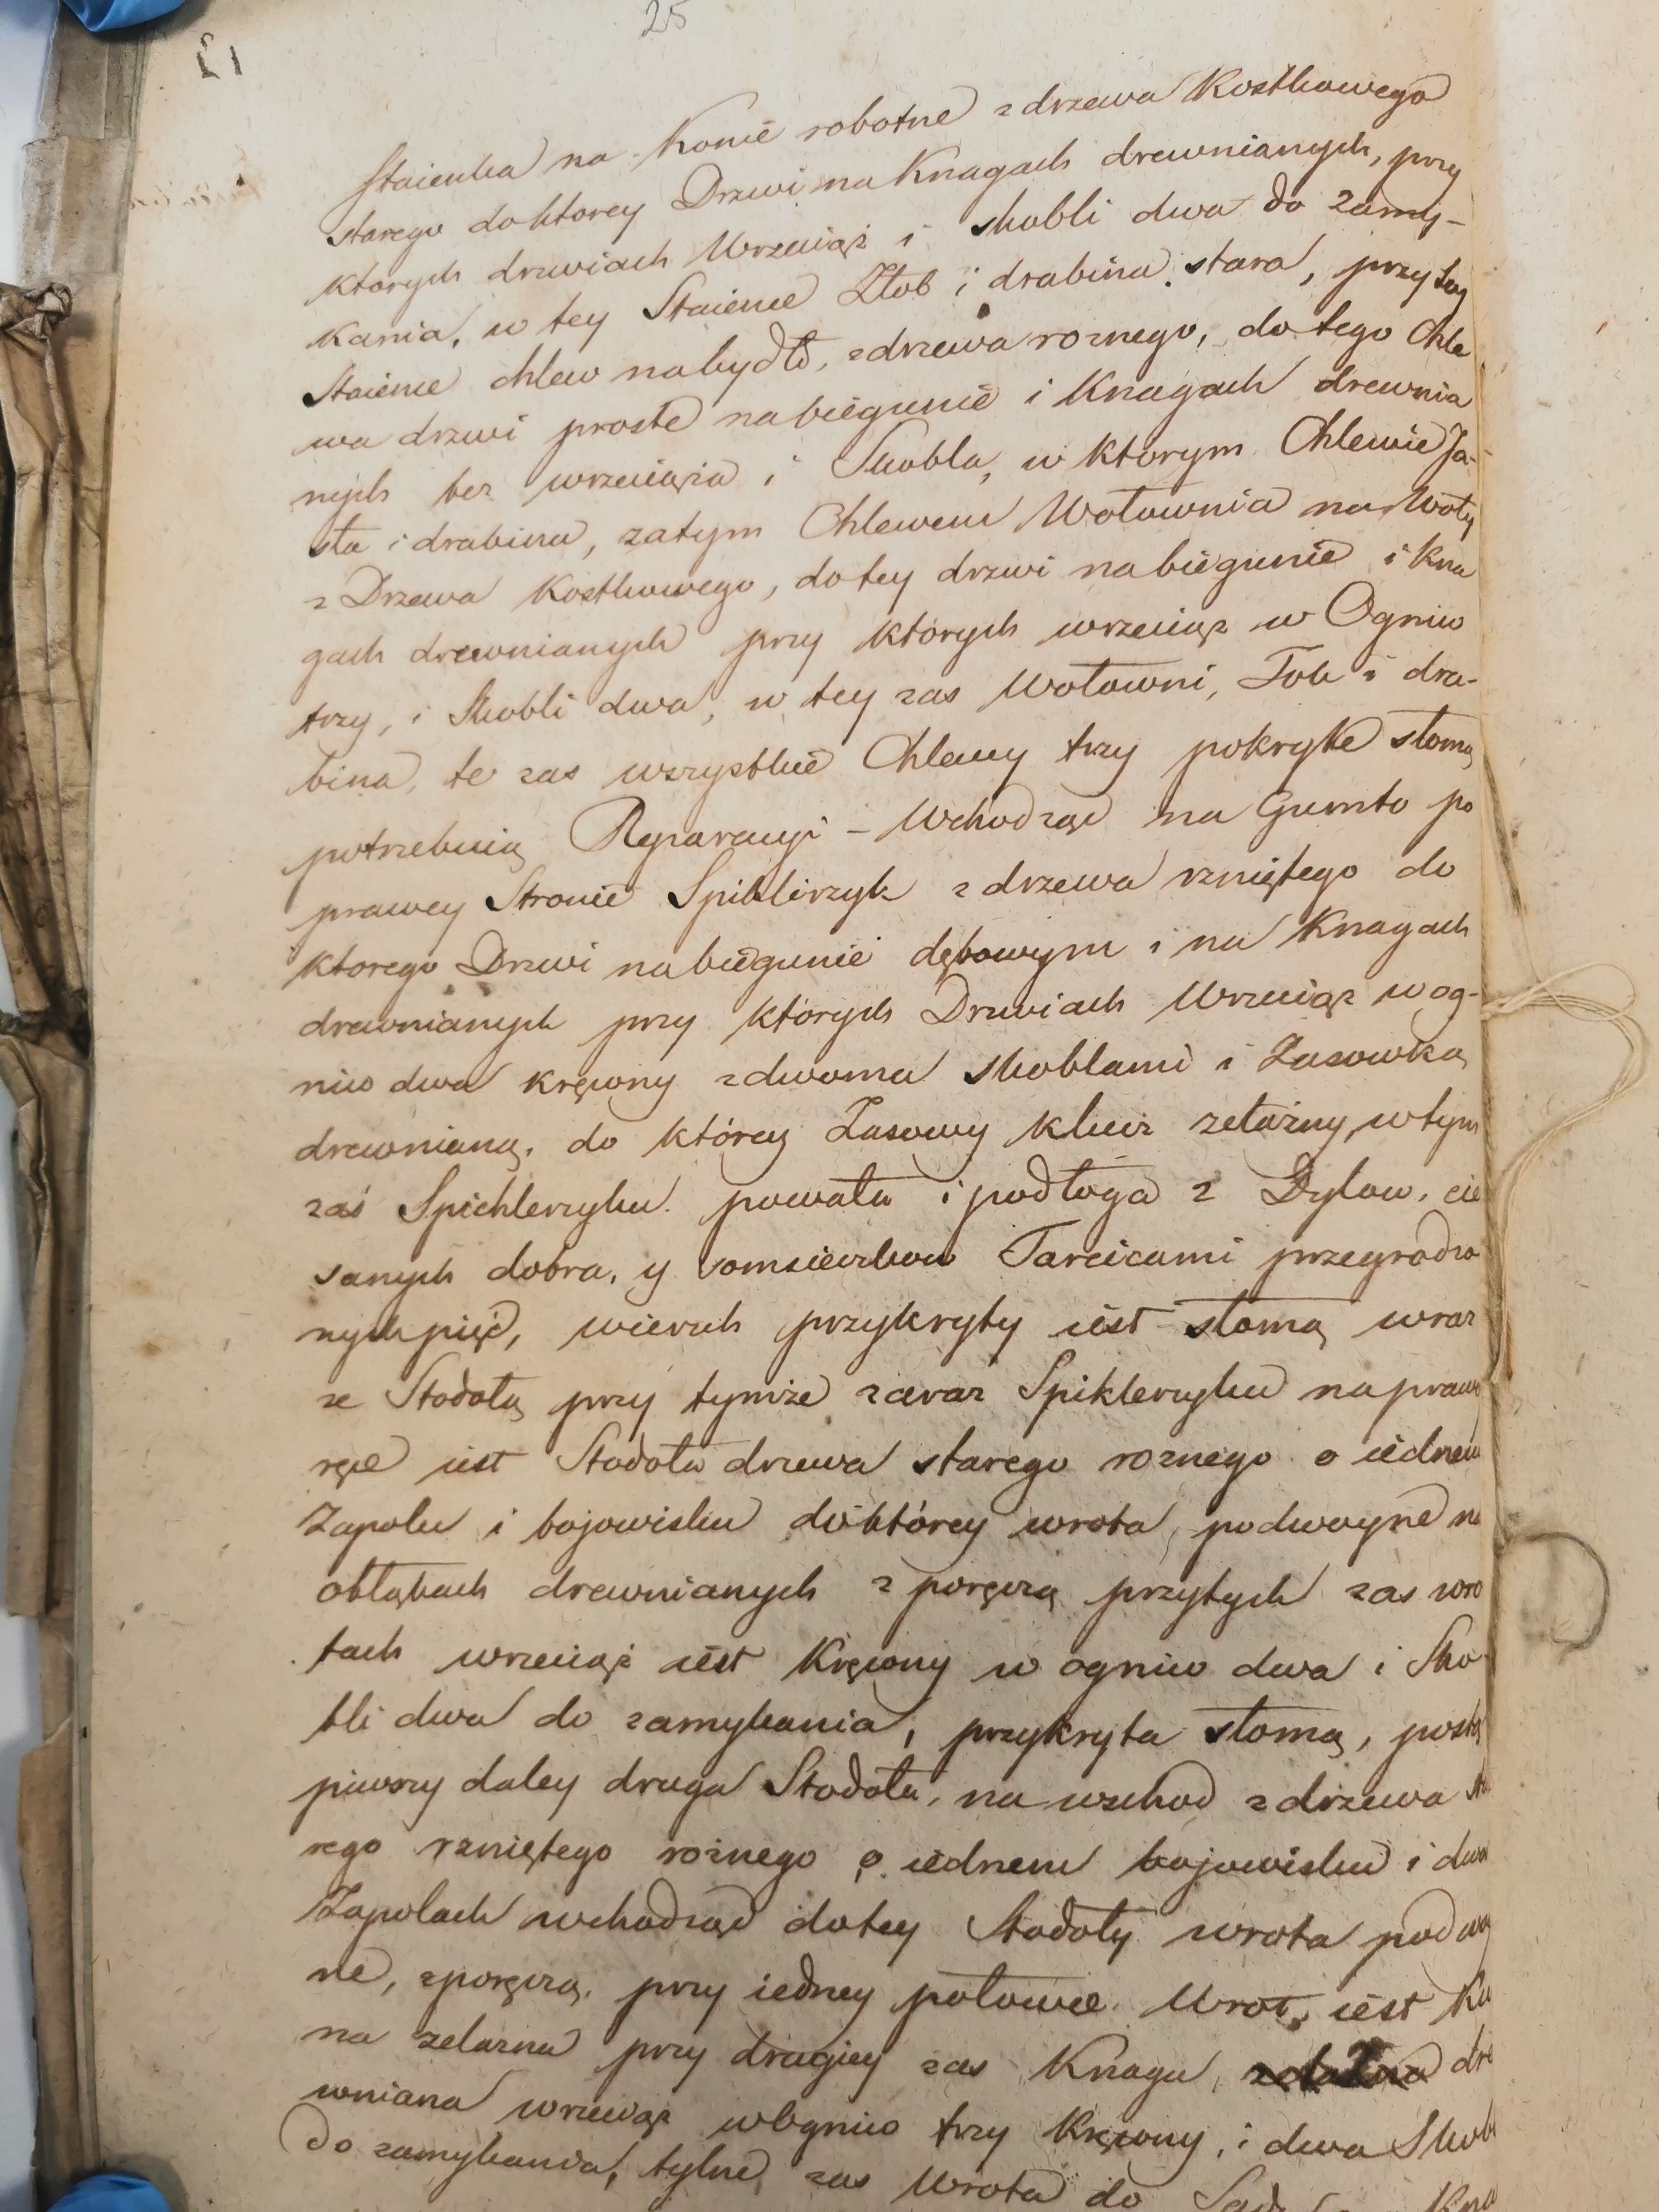 25
Staienka na Konie robotne z drzewa Kostkowego
starego do ktorey Drzwi na Knagach drewnianych, przy
ktorych drzwiach Wrzeciąż i skobli dwa do zamy-
kania, w tey Staience Złob i drabina stara, przy tey
Staience chlew na bydło, z drzewa roznego, do tego Chle
wa drzwi proste na biegunie i Knagach drewnia
nych bez wrzeciąza i Skobla, w którym Chlewie Ja-
sła i drabina, za tym Chlewem Wołownia na Woły
z Drzewa Kostkowego, do tey drzwi na biegunie i kna
gach drewnianych przy których wrzeciąz w Ogniw
trzy, i Skobli dwa, w tey zas Wołowni, Żłob i dra-
bina, te zas wszystkie Chlewy trzy pokryte słomą
potrzebuią Reparacyi – Wchodząc na Gumto po
prawey Stronie Spiklirzyk z drzewa rzniętego do
ktorego Drzwi na biegunie dębowym i na Knagach
drewnianych przy których Drzwiach Wrzeciąz w og-
niw dwa kręcony z dwoma skoblami i Zasowką
drewnianą, do którey Zasowy klucz zelażny, w tym
zaś Spichlerzyku powała i podłoga z Dylow, cie
sanych dobra, y somsieczkow Tarcicami przegrodzo
nych pięć, wierzch przykryty iest słomą wraz
ze Stodołą przy tymże zaraz Spiklerzyku na prawe
ręce iest Stodoła drzewa starego roznego o iednem
Zapolu i bojowisku do którey wrota podwoyne na
obłąkach drewnianych z poręczą przy tych zas wro
tach wrzeciąż iest Kręcony w ogniw dwa i Sko-
bli dwa do zamykania, przykryta słomą, postą
piwszy daley druga Stodoła, na wschod z drzewa sta
rego rzniętego rożnego o iednem bojowisku i dwu
Zapolach wchodząc do tey Stodoły wrota podwoy
ne, z poręczą, przy iedney połowie Wrot, iest Ku
na zelazna przy drugiey zas Knaga, dre
wniana wrzeciąz w Ogniw trzy Kręcony, i dwa Skob
do zamykania, tylne zas Wrota do